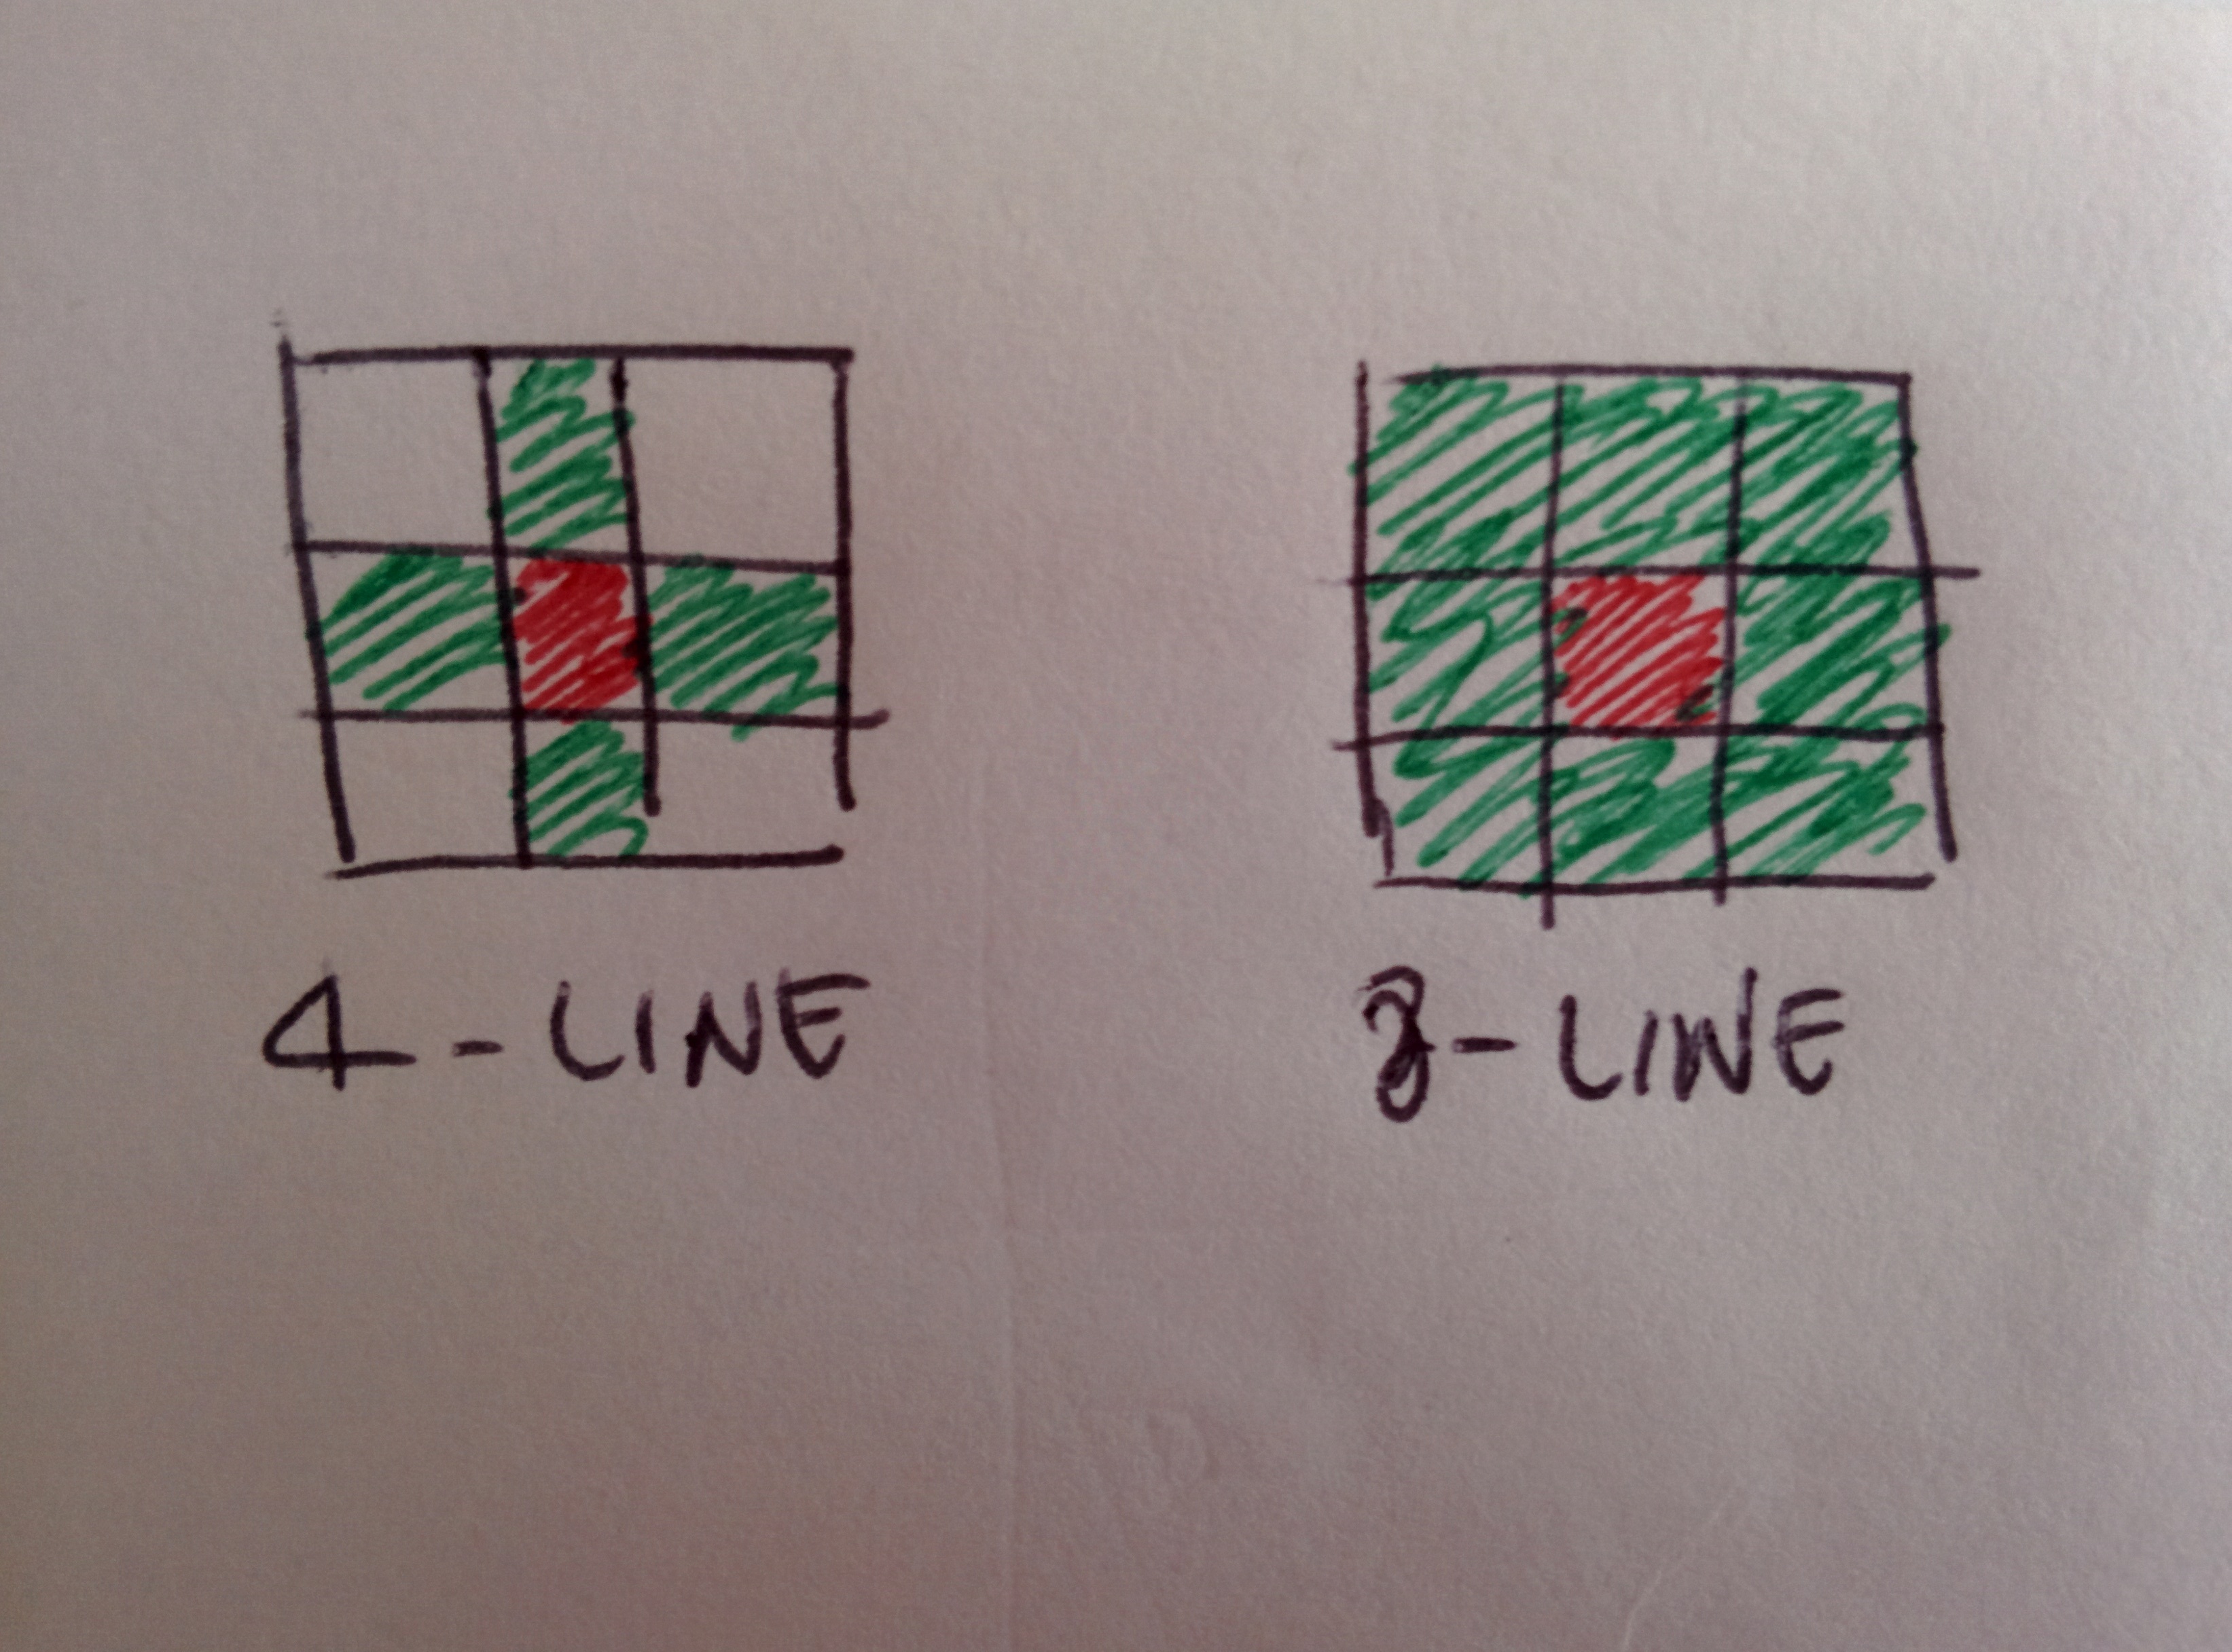 4-LINE
8-LINE